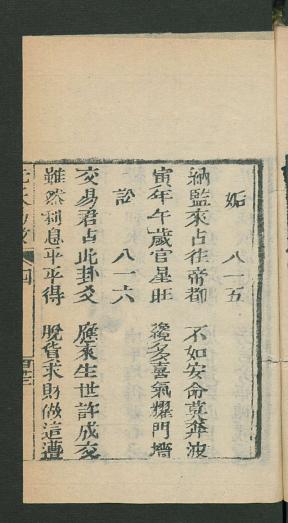 姤 八一五
納監來占往帝都 不如安命莫奔波
寅年午歲官星旺 後多喜氣耀門墻
訟 八一六
交易君占此卦爻 應來生世許成交
雖然利息平平得 脫貨求財做這遭
四